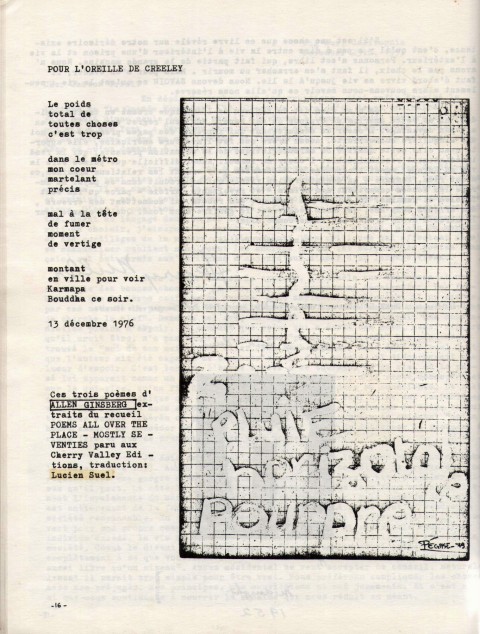 POUR L'OREILLE DE CREELEY
Le poids
total de
toutes choses
c'est trop
dans le métro
mon coeur
martelant
précis
mal à la tête
de fumer
moment
de vertige
montant
en ville pour voir
Karmapa
Bouddha ce soir.
13 décembre 1976
Ces trois poèmes d'
ALLEN GINSBERG ex-
traits du recueil
POEMS ALL OVER THE
PLACE - MOSTLY SE -
VENTIES paru aux
Cherry Valley Edi -
tions, traduction:
Lucien Suel.
pluie
horizotale
pourpre
-16-